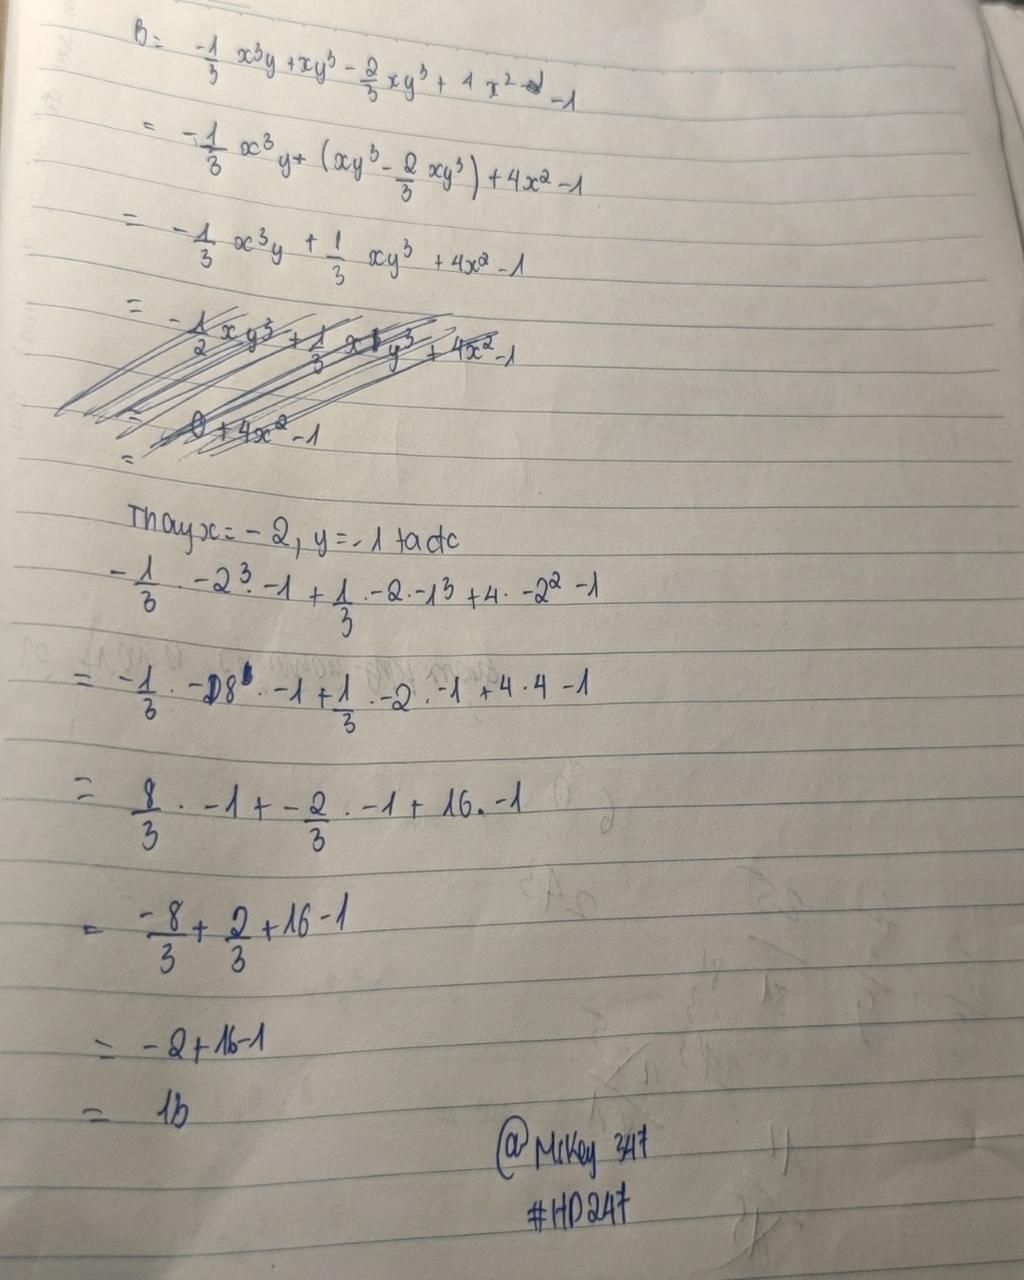 B = -1/3 x³y + xy³ - 2/3 xy³ + 4x² - 1
= -1/3 x³y + (xy³ - 2/3 xy³) + 4x² - 1
= -1/3 x³y + 1/3 xy³ + 4x² - 1
= -1/2 xy³ + 1/3 x y³ + 4x² - 1
= 0 + 4x² - 1
=
Thay x = -2, y = -1 ta đc
-1/3 . -2³ . -1 + 1/3 . -2 . -1³ + 4 . -2² - 1
= -1/3 . -8 . -1 + 1/3 . -2 . -1 + 4 . 4 - 1
= 8/3 . -1 + -2/3 . -1 + 16 . -1
= -8/3 + 2/3 + 16 - 1
= -2 + 16 - 1
= 13
@Mikey 347
#HD247